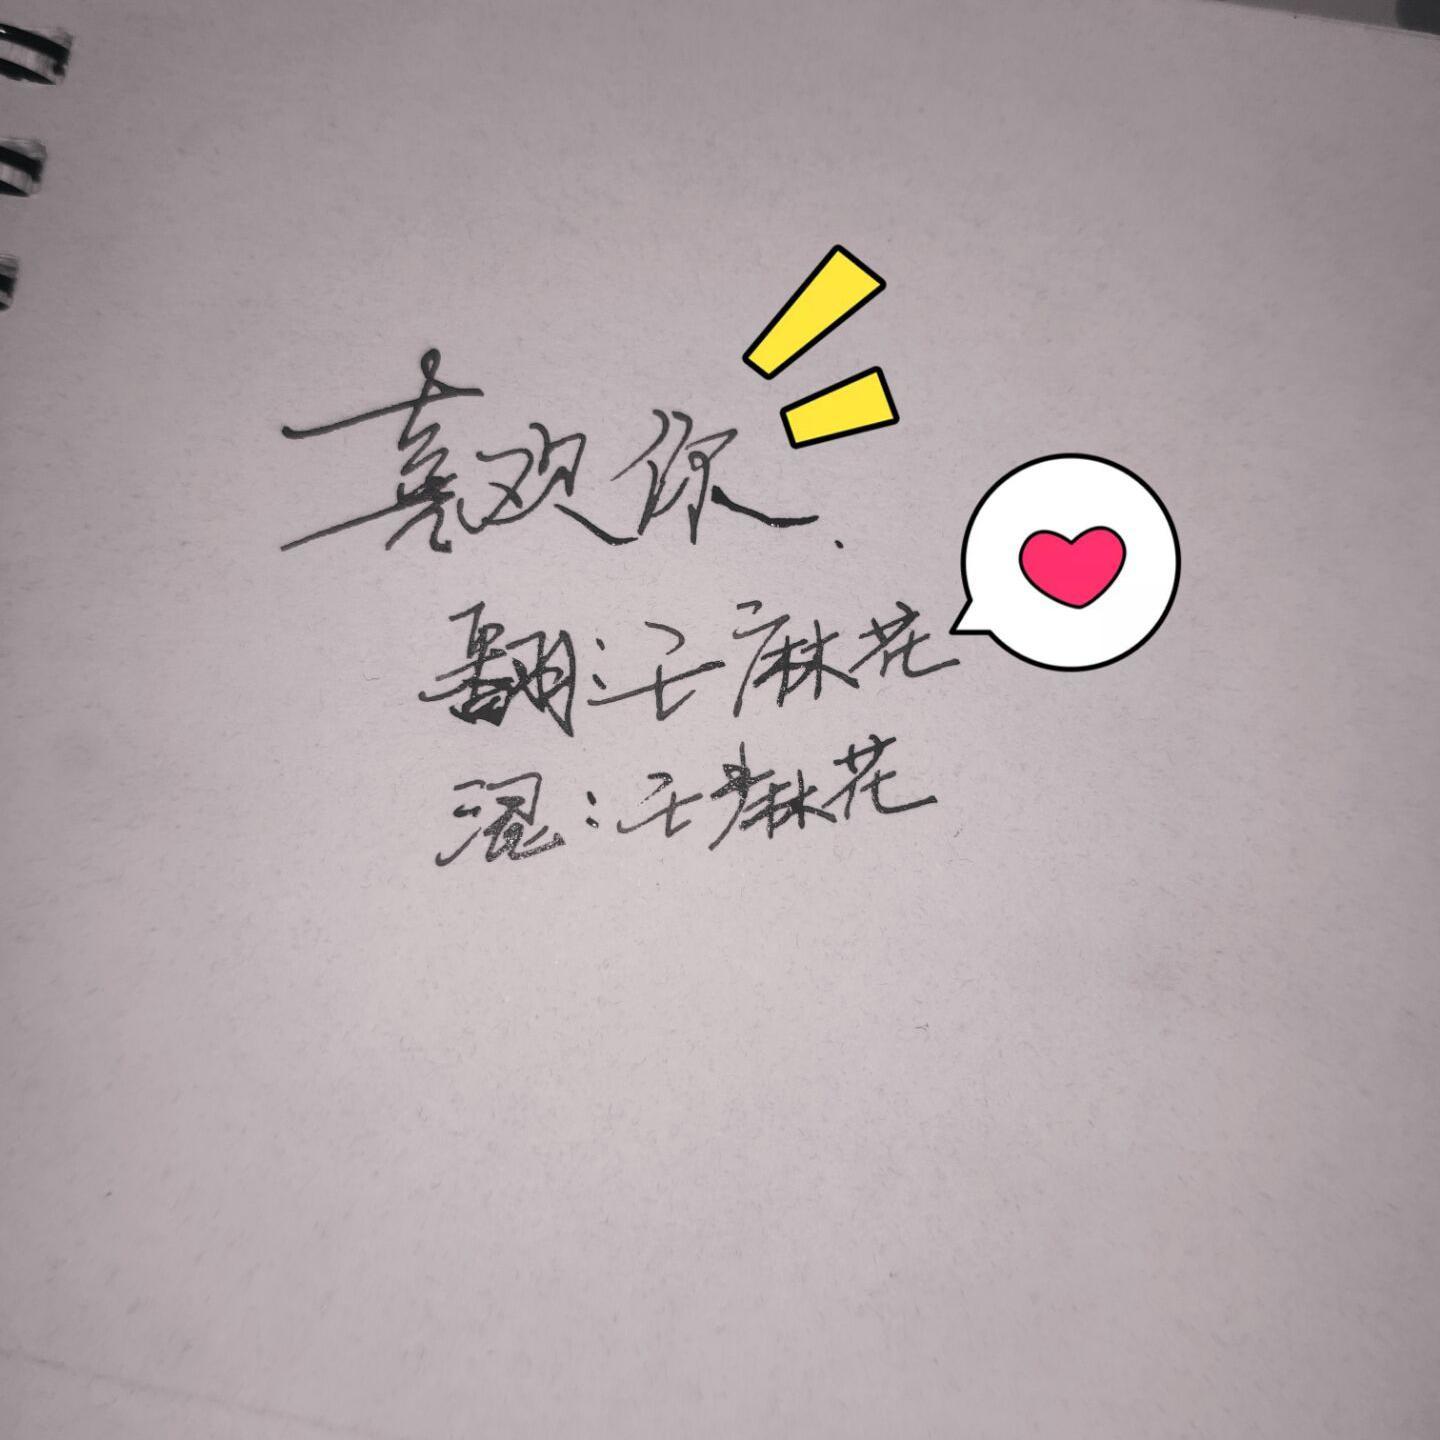 喜欢你.
翻:麻花
混:麻花